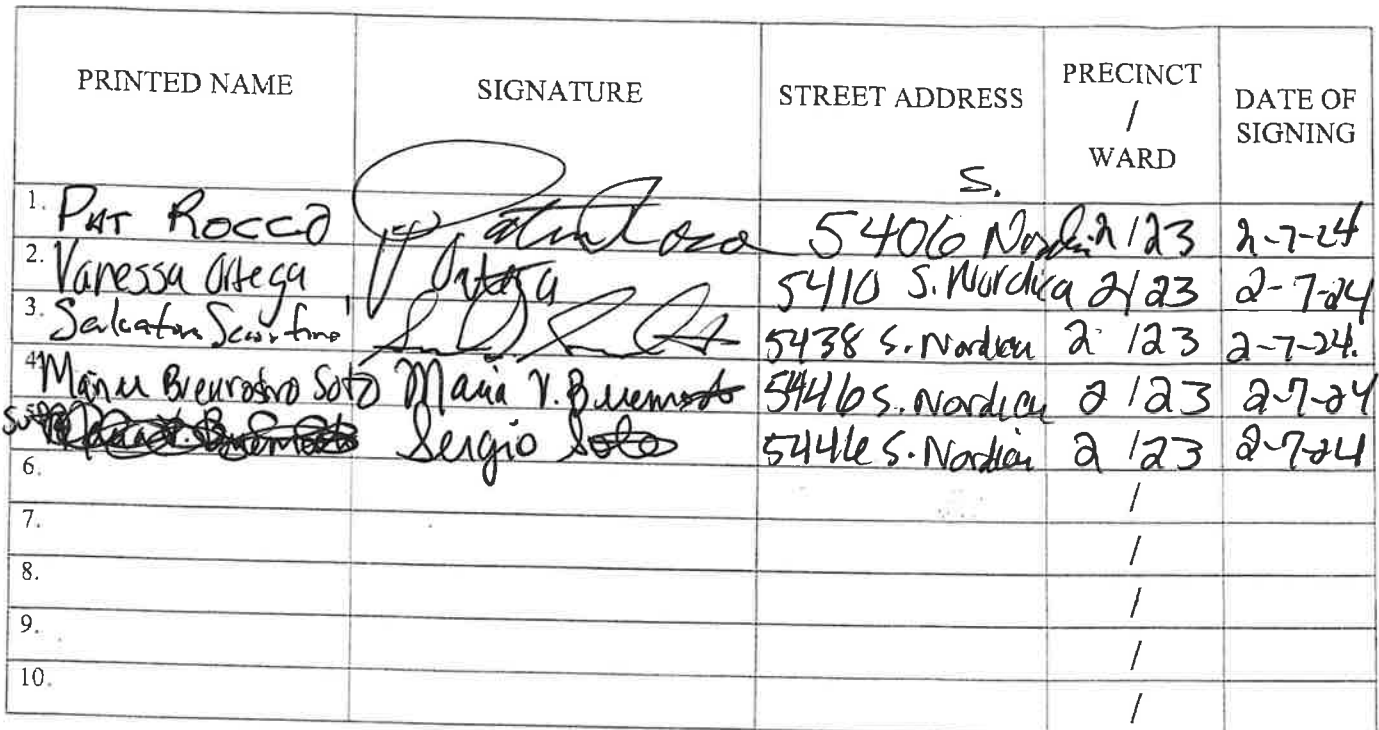 PRINTED NAME SIGNATURE STREET ADDRESS PRECINCT / WARD DATE OF SIGNING
1. PAT ROCCO 5406 S. Nordica 2/23 2-7-24
2. Vanessa Ortega V Ortega 5410 S. Nordica 2/23 2-7-24
3. 5438 S. Nordica 2/23 2-7-24.
4. Soto Maria V. 5446 S. Nordica 2/23 2-7-24
5. Sergio Soto 5446 S. Nordica 2/23 2-7-24
6. /
7. /
8. /
9. /
10. /